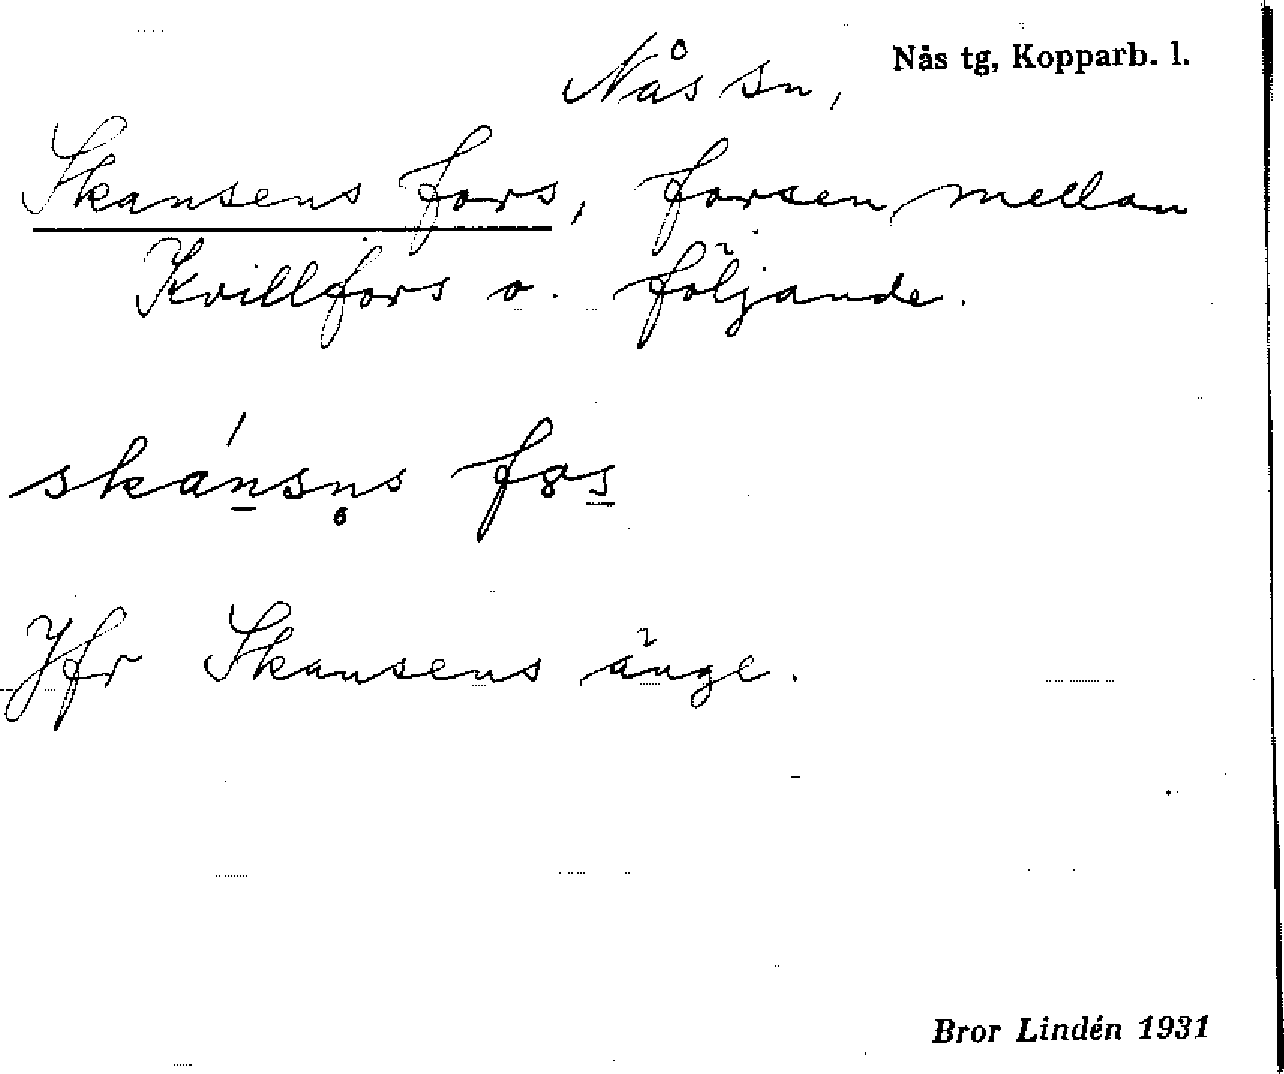 Nås sn, Nås tg, Kopparb. l.
Skansens fors, forsen mellan
Kvillfors o. följande.
ska̍n̲sn̥s fꝏs̲
Jfr Skansens änge.
Bror Lindén 1931